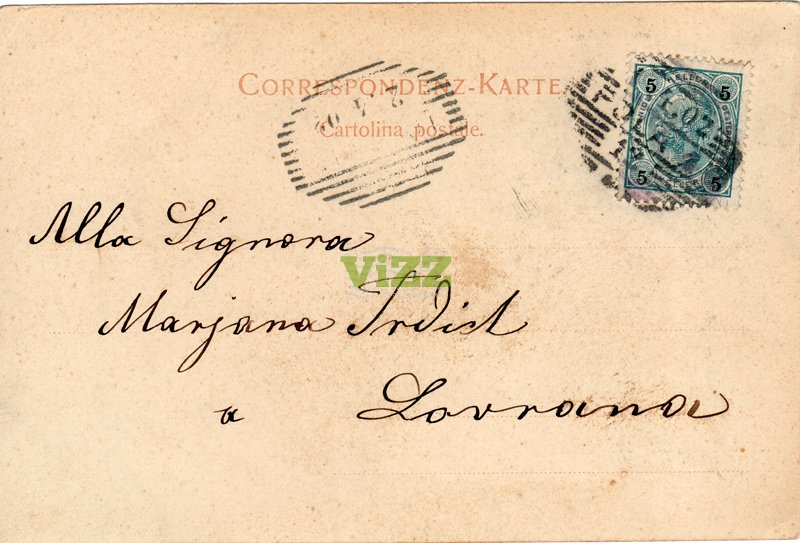 CORRESPONDENZ-KARTE.
Cartolina postale.
5 5
5 5
Alla Signora
ViZZ
Marjana Trdict
a Lovrana